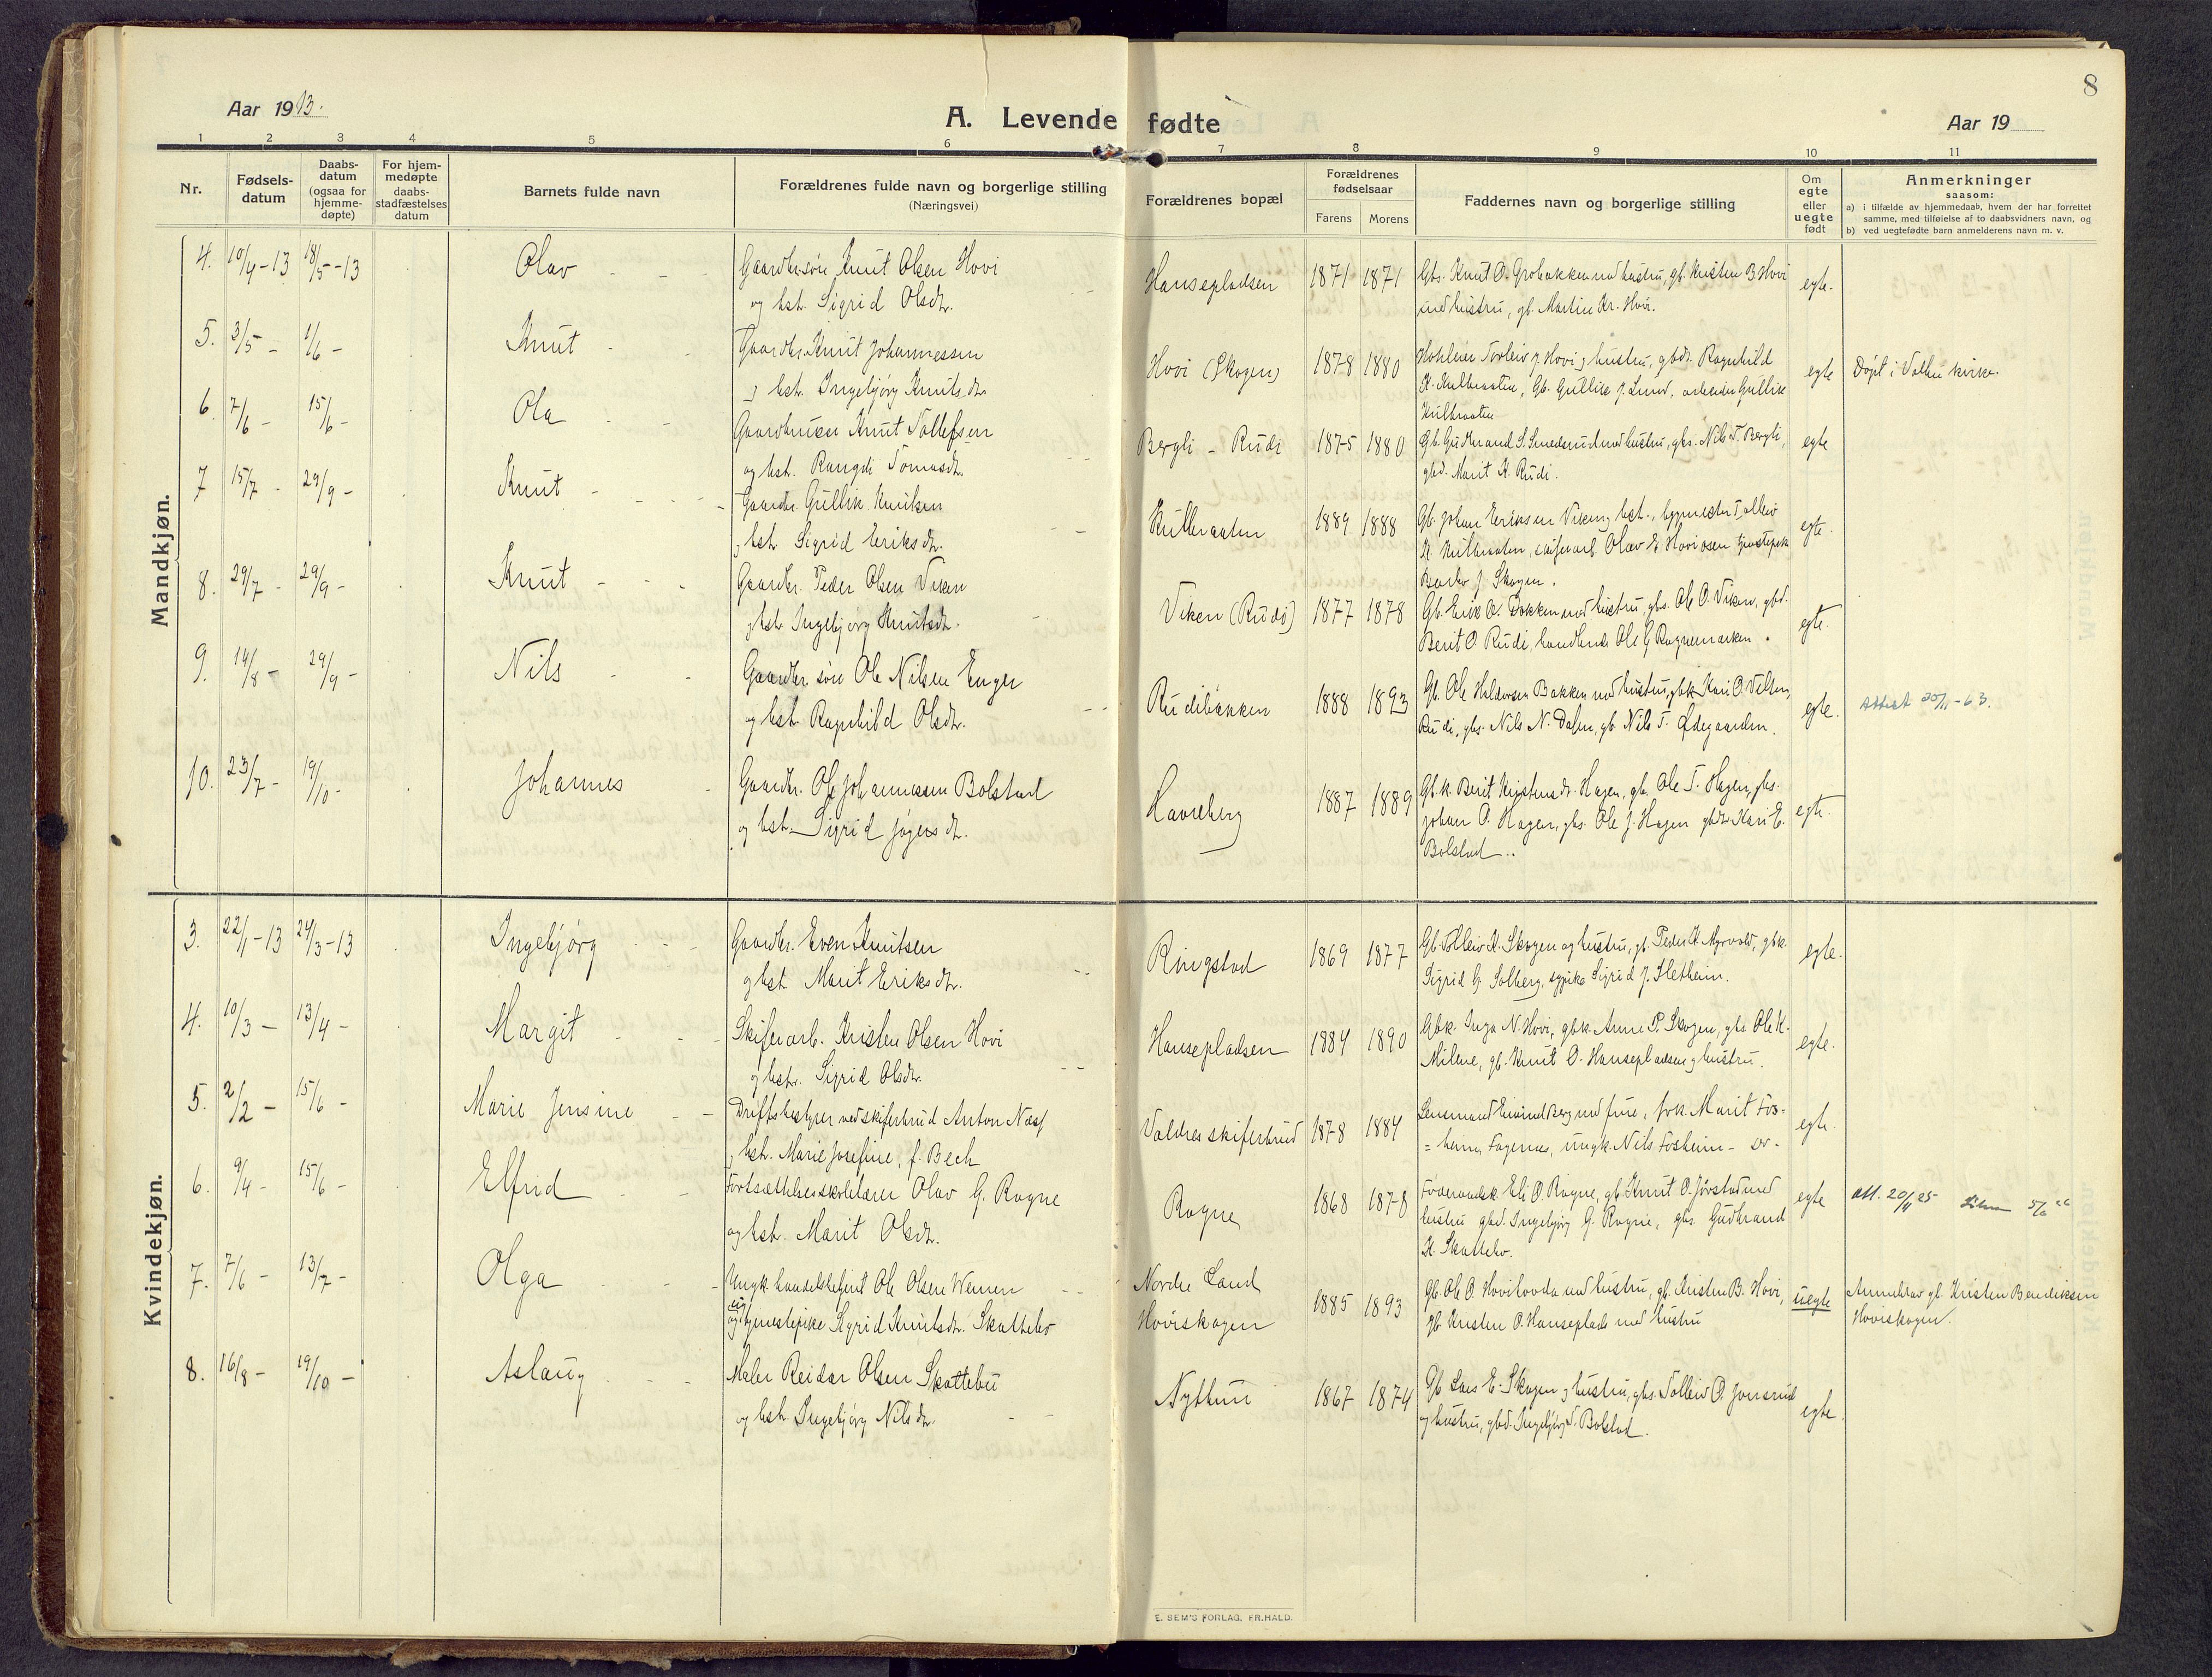 8
Aar 1913.
A. Levende fødte
Aar 19
1 2 3 4 5 6 7 8 9 10 11
Nr.
Fødsels-
datum
Daabs-
datum
(ogsaa for
hjemme-
døpte)
For hjem-
medøpte
daabs-
stadfæstelses
datum
Barnets fulde navn
Forældrenes fulde navn og borgerlige stilling
(Næringsvei)
Forældrenes bopæl
Forældrenes
fødselsaar
Farens Morens
Faddernes navn og borgerlige stilling
Om
egte
eller
uegte
født
Anmerkninger
saasom:
a) i tilfælde av hjemmedaab, hvem der har forrettet
samme, med tilføielse af to daabsvidners navn, og
b) ved uegtefødte barn anmelderens navn m. v.
Mandkjøn.
4. 10/4-13 18/5-13 Olav
Gaardbrsøn Knut Olsen Hovi
og hst. Sigrid Olsdtr.
Hansepladsen 1871 1871
Gbs. Knut O. Grobakken med hustru, gb. Kristen B. Hovi
med hustru, gb. Martin Kr. Hovi.
egte.
5. 3/5 - 1/6 - Knut
Gaardbr. Knut Johannessen
og hst. Ingebjørg Knutsdtr
Hovi (Skogen) 1878 1880
Torleiv J. Hovi og hustru, gbdt. Ragnhild
K. Kulbraaten, Gb. Gullik J. Lund, arbeider Gullik
Kulbraaten
egte Døpt i Volbu kirke.
6. 7/6 - 15/6 - Ola
Gaardbruker Knut Tollefsen
og hst. Rangdi Tomasdtr.
Bergli - Rudi 1875 1880
Gb. Gudbrand S. Smedsrud med hustru, gbs. Nils T. Bergli,
gbd. Marit K. Rudi.
egte
7 15/7 - 29/9 - Knut
Gaardbr. Gullik Knutsen
og hst. Sigrid Eriksdtr.
Kulbraaten 1889 1888
Gb. Johan Eriksen Viken og hst., bygmester Tolleiv
K. Kulbraaten, skiferarb. Olav E. Hoviosen tjenestepike
J. Skogen.
egte.
8. 29/7 - 29/9 - Knut
Gaardbr. Peder Olsen Viken
og hst. Ingebjørg Knutsdtr.
Viken (Rudi) 1877 1878
Gb. Erik A. Bakken med hustru, gbs. Ole O. Viken, gbd.
Berit O. Rudi, handlende Ole G. Rognemarken.
egte.
9. 14/8 - 29/9 - Nils
Gaardbr. søn Ole Nilsen Enger
og hst. Ragnhild Olsdtr.
Rudibakken 1888 1893
Gb. Ole Haldorsen Bakken med hustru, gbk. Kari O. Velten,
Rudi, gbs. Nils N. Dalen, gb. Nils T. Ødegaarden.
egte. Attest 20/11-63.
10. 23/7 - 19/10 - Johannes
Gaardbr. Ole Johannessen Bolstad
og hst. Sigrid Jøgensdtr.
Havreberg 1887 1889
Gb.k. Berit Kristensdtr. Hagen, gb. Ole T. Hagen, gbs.
Johan O. Hagen, gbs. Ole J. Hagen gbdtr. Kari E.
Bolstad.
egte.
Kvindekjøn.
3. 22/1-13 24/3-13 Ingebjørg
Gaardbr. Even Knutsen
og hst. Marit Eriksdtr.
Ringstad 1869 1877
Gb. Tolleiv K. Skogen og hustru, gb. Peder K. Myrvold, gbk.
Sigrid G. Solberg, sypike Sigrid J. Sletheim.
egte.
4. 10/3 - 13/4 - Margit
Skiferarb. Kristen Olsen Hovi
og hst. Sigrid Olsdtr.
Hansepladsen 1884 1890
Gbk. Inga N. Hovi, gbk. Anne P. Skogen, gbs. Ole K.
Milene, gb. Knut O. Hansepladsen og hustru.
egte.
5. 2/2 - 15/6 - Marie Jensine
Driftsbestyrer ved skiferbrud Anton Næss
og hst. Marie Josefine, f. Bech
Valdres skiferbrud 1878 1884
Lensmand Eivind Berg med frue, frk. Marit Fos-
=heim, Fagernes, ungk. Nils Fosheim
egte.
6. 9/4 - 15/6 - Elfrid
Fortsættelsesskolelærer Olav G. Rogne
og hst. Marit Olsdtr.
Rogne 1868 1878
Føderaadsk. Eli O. Rogne, gb. Knut O. Jørstad med
hustru gbd. Ingebjørg G. Rogne, gbs. Gudbrand
K. Skattebo.
egte Att. 20/11 25
7. 7/6 - 13/7 - Olga
Ungk. handelsbetjent Ole Olsen Wernen
og pig. tjenestepike Sigrid Knutsdtr. Skattebo
Nordre Land
Hoviskogen
1885 1893
Gb. Ole O. Hovilovda med hustru, gb. Kristen B. Hovi,
gb. Kristen O. Hanseplads med hustru
uegte
Anmeldt av gb. Kristen Bendiksen
Hoviskogen.
8. 16/8 - 19/10 - Aslaug
Maler Reidar Olsen Skattebu
og hst. Ingebjørg Nilsdtr.
Nythun 1867 1874
Gb. Lars E. Skogen og hustru, gbs. Tolleiv O. Jonsrud
og hustru, gbd. Ingebjørg T. Bolstad.
egte.
E. SEM'S FORLAG, FR.HALD.